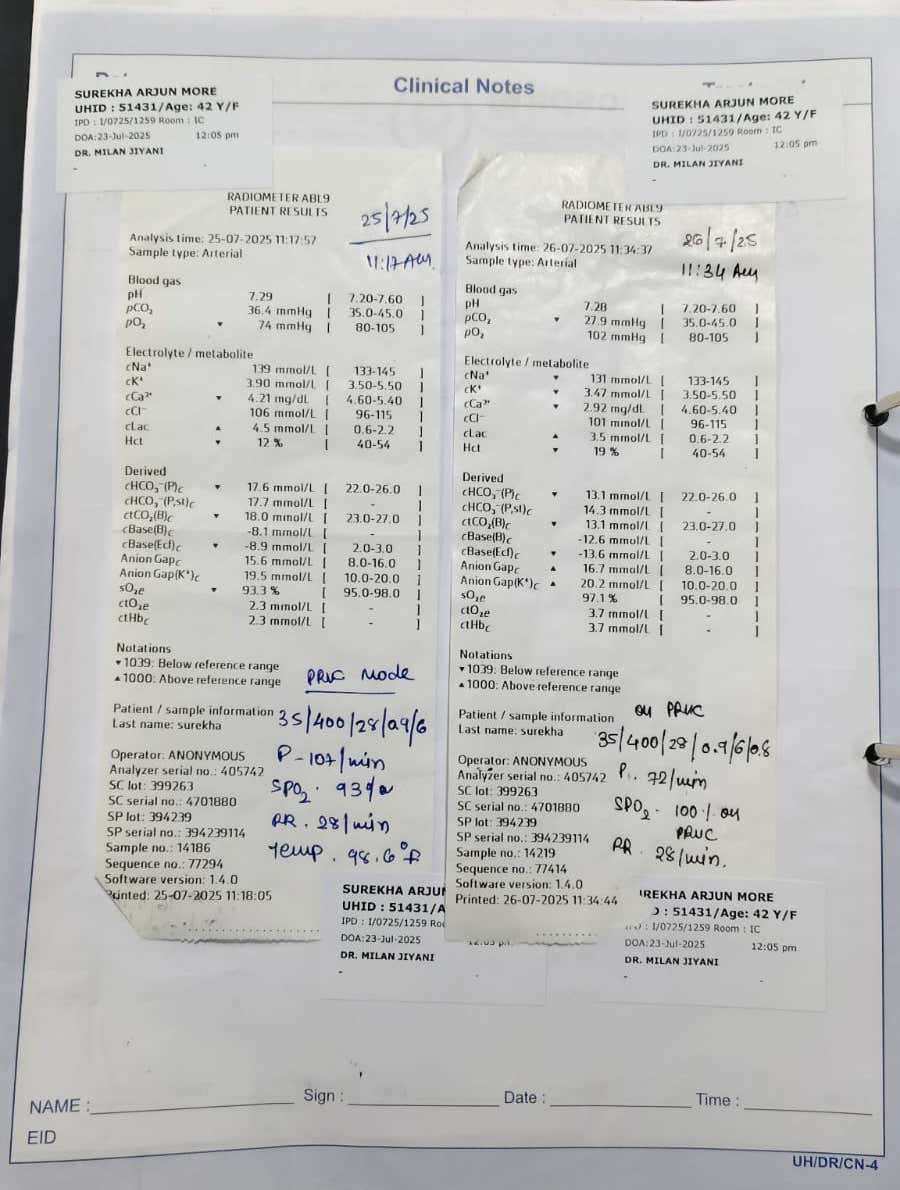 Clinical Notes
SUREKHA ARJUN MORE
UHID : 51431/Age: 42 Y/F
IPD : I/0725/1259 Room : IC
DOA:23-Jul-2025 12:05 pm
DR. MILAN JIYANI
SUREKHA ARJUN MORE
UHID : 51431/Age: 42 Y/F
IPD : I/0725/1259 Room : IC
DOA:23-Jul-2025 12:05 pm
DR. MILAN JIYANI
RADIOMETER ABL9
PATIENT RESULTS
25/7/25
Analysis time: 25-07-2025 11:17:57
Sample type: Arterial
11:17 AM
Blood gas
pH 7.29 [ 7.20-7.60 ]
pCO₂ 36.4 mmHg [ 35.0-45.0 ]
pO₂ ▼ 74 mmHg [ 80-105 ]
Electrolyte / metabolite
cNa⁺ 139 mmol/L [ 133-145 ]
cK⁺ 3.90 mmol/L [ 3.50-5.50 ]
cCa²⁺ ▼ 4.21 mg/dL [ 4.60-5.40 ]
cCl⁻ 106 mmol/L [ 96-115 ]
cLac ▲ 4.5 mmol/L [ 0.6-2.2 ]
Hct ▼ 12 % [ 40-54 ]
Derived
cHCO₃⁻(P)c ▼ 17.6 mmol/L [ 22.0-26.0 ]
cHCO₃⁻(P,st)c 17.7 mmol/L [ - ]
ctCO₂(B)c ▼ 18.0 mmol/L [ 23.0-27.0 ]
cBase(B)c -8.1 mmol/L [ - ]
cBase(Ecf)c ▼ -8.9 mmol/L [ 2.0-3.0 ]
Anion Gapc 15.6 mmol/L [ 8.0-16.0 ]
Anion Gap(K⁺)c 19.5 mmol/L [ 10.0-20.0 ]
sO₂e ▼ 93.3 % [ 95.0-98.0 ]
ctO₂e 2.3 mmol/L [ - ]
ctHbc 2.3 mmol/L [ - ]
Notations
▼ 1039: Below reference range
▲ 1000: Above reference range
PRVC Mode
Patient / sample information
Last name: surekha
35/400/28/0.9/6
Operator: ANONYMOUS
P - 107/min
Analyzer serial no.: 405742
SC lot: 399263
SPO₂ . 93%
SC serial no.: 4701880
SP lot: 394239
RR . 28/min
SP serial no.: 394239114
Sample no.: 14186
Temp . 98.6°F
Sequence no.: 77294
Software version: 1.4.0
Printed: 25-07-2025 11:18:05
RADIOMETER ABL9
PATIENT RESULTS
26/7/25
Analysis time: 26-07-2025 11:34:37
Sample type: Arterial
11:34 AM
Blood gas
pH 7.28 [ 7.20-7.60 ]
pCO₂ ▼ 27.9 mmHg [ 35.0-45.0 ]
pO₂ 102 mmHg [ 80-105 ]
Electrolyte / metabolite
cNa⁺ ▼ 131 mmol/L [ 133-145 ]
cK⁺ ▼ 3.47 mmol/L [ 3.50-5.50 ]
cCa²⁺ ▼ 2.92 mg/dL [ 4.60-5.40 ]
cCl⁻ 101 mmol/L [ 96-115 ]
cLac ▲ 3.5 mmol/L [ 0.6-2.2 ]
Hct ▼ 19 % [ 40-54 ]
Derived
cHCO₃⁻(P)c ▼ 13.1 mmol/L [ 22.0-26.0 ]
cHCO₃⁻(P,st)c 14.3 mmol/L [ - ]
ctCO₂(B)c ▼ 13.1 mmol/L [ 23.0-27.0 ]
cBase(B)c -12.6 mmol/L [ - ]
cBase(Ecf)c ▼ -13.6 mmol/L [ 2.0-3.0 ]
Anion Gapc ▲ 16.7 mmol/L [ 8.0-16.0 ]
Anion Gap(K⁺)c ▲ 20.2 mmol/L [ 10.0-20.0 ]
sO₂e 97.1 % [ 95.0-98.0 ]
ctO₂e 3.7 mmol/L [ - ]
ctHbc 3.7 mmol/L [ - ]
Notations
▼ 1039: Below reference range
▲ 1000: Above reference range
Patient / sample information
on PRVC
Last name: surekha
35/400/28/0.9/6/0.8
Operator: ANONYMOUS
Analyzer serial no.: 405742
P. 72/min
SC lot: 399263
SC serial no.: 4701880
SPO₂ . 100% on
PRVC
SP lot: 394239
SP serial no.: 394239114
RR . 28/min.
Sample no.: 14219
Sequence no.: 77414
Software version: 1.4.0
Printed: 26-07-2025 11:34:44
SUREKHA ARJUN
UHID : 51431/A
IPD : I/0725/1259 Roo
DOA:23-Jul-2025 12:05 p
DR. MILAN JIYANI
UREKHA ARJUN MORE
D : 51431/Age: 42 Y/F
: I/0725/1259 Room : IC
DOA:23-Jul-2025 12:05 pm
DR. MILAN JIYANI
NAME : Sign : Date : Time :
EID
UH/DR/CN-4